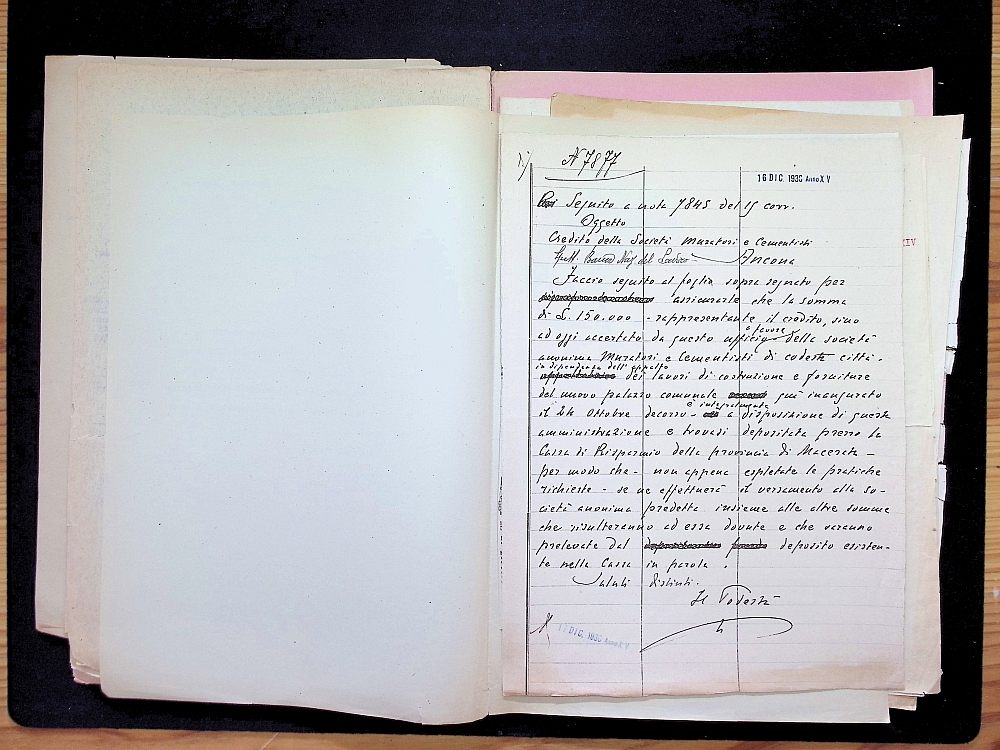 N 7877
16 DIC. 1936 Anno XV
Seguito a nota 7845 del 15 corr.
Oggetto
Credito della Società Muratori e Cementisti
Spett. Banca Naz. del Lavoro - Ancona
Faccio seguito al foglio sopra segnato per
assicurarle che la somma
di £. 150.000 - rappresentante il credito, sino
ad oggi accertato da questo ufficio a favore della società
anonima Muratori e Cementisti di codesta città -
in dipendenza dell'appalto
dei lavori di costruzione e forniture
del nuovo palazzo comunale qui inaugurato
è integralmente
il 24 Ottobre decorso - a disposizione di questa
amministrazione e trovasi depositata presso la
Cassa di Risparmio della provincia di Macerata -
per modo che - non appena espletate le pratiche
richieste - se ne effettuerà il versamento alla so-
cietà anonima predetta insieme alle altre somme
che risulteranno ad essa dovute e che saranno
prelevate dal deposito esisten-
te nella Cassa in parola.
Saluti distinti.
Il Podestà
17 DIC. 1936 Anno XV
XIV